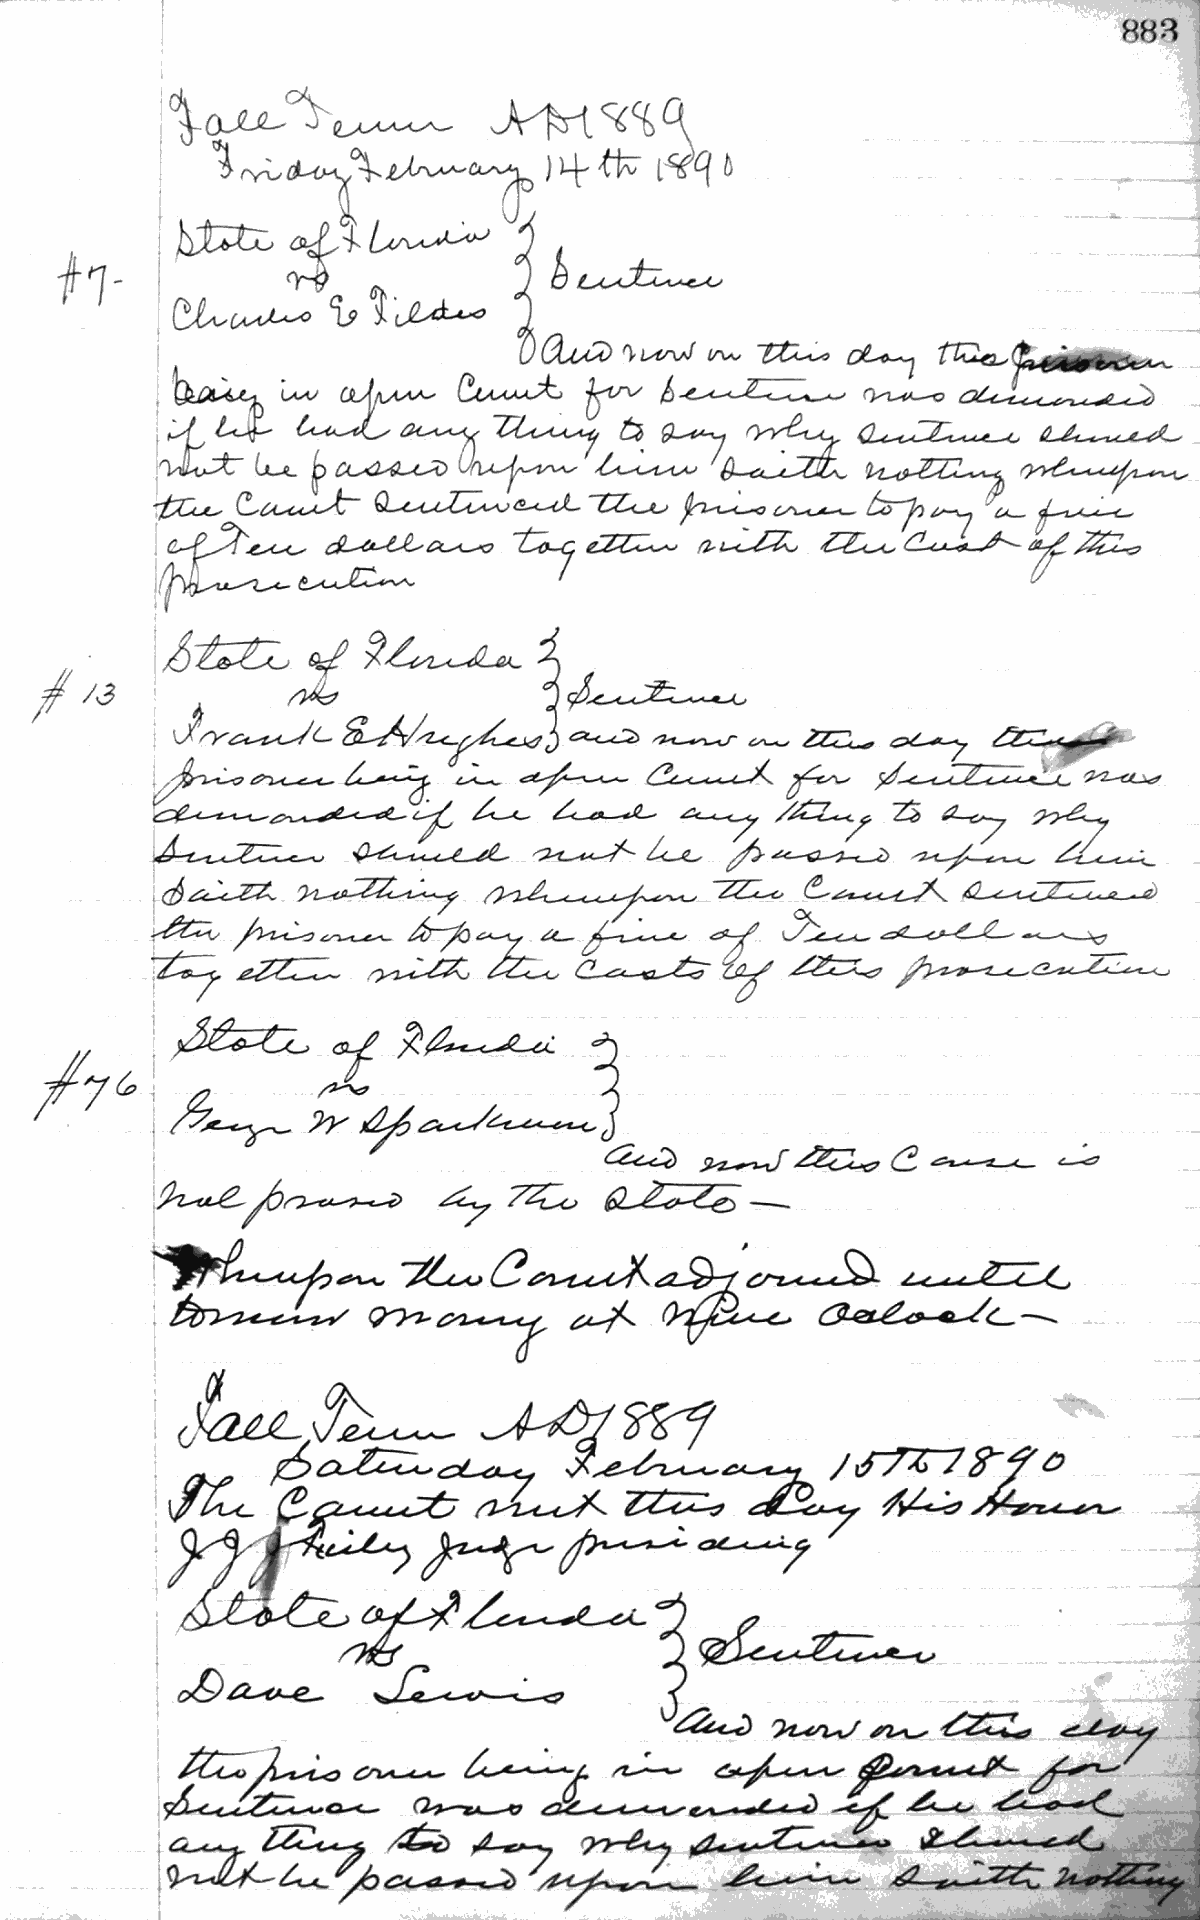 883
Fall Term AD 1889
Friday February 14th 1890
State of Florida
#7- vs } Sentence
Charles E Tildes
And now on this day the prisoner
being in open Court for Sentence was demanded
if he had any thing to say why sentence should
not be passed upon him saith nothing whereupon
the Court sentenced the prisoner to pay a fine
of Ten dollars together with the Cost of this
prosecution
State of Florida
#13 vs } Sentence
Frank E Hughes } and now on this day the
prisoner being in open Court for Sentence was
demanded if he had any thing to say why
Sentence should not be passed upon him
Saith nothing whereupon the Court sentenced
the prisoner to pay a fine of Ten dollars
together with the Costs of this prosecution
State of Florida
#76 vs }
George W Sparkman
and now this Cause is
nol prosed by the State —
Whereupon the Court adjourned until
tomorrow morning at Nine Oclock —
Fall Term AD 1889
Saturday February 15Th 1890
The Court met this Day His Honor
J J Judge presiding
State of Florida
vs } Sentence
Dave Lewis
And now on this day
the prisoner being in open Court for
Sentence was demanded if he had
any thing to say why sentence should
not be passed upon him saith nothing